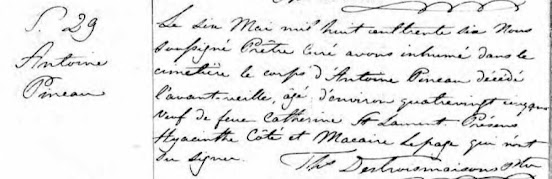 S. 29
Antoine
Pineau
Le six Mai mil huit cent trente six Nous
soussigné Prêtre Curé avons inhumé dans le
cimetière le corps d'Antoine Pineau décédé
l'avant-veille, âgé d'environ quatrevingt cinq ans
veuf de feue Catherine St Laurent Présens
Hyacinthe Côté et Macaire Lepage qui n'ont
su signer.
Ths Destroismaisons Ptre